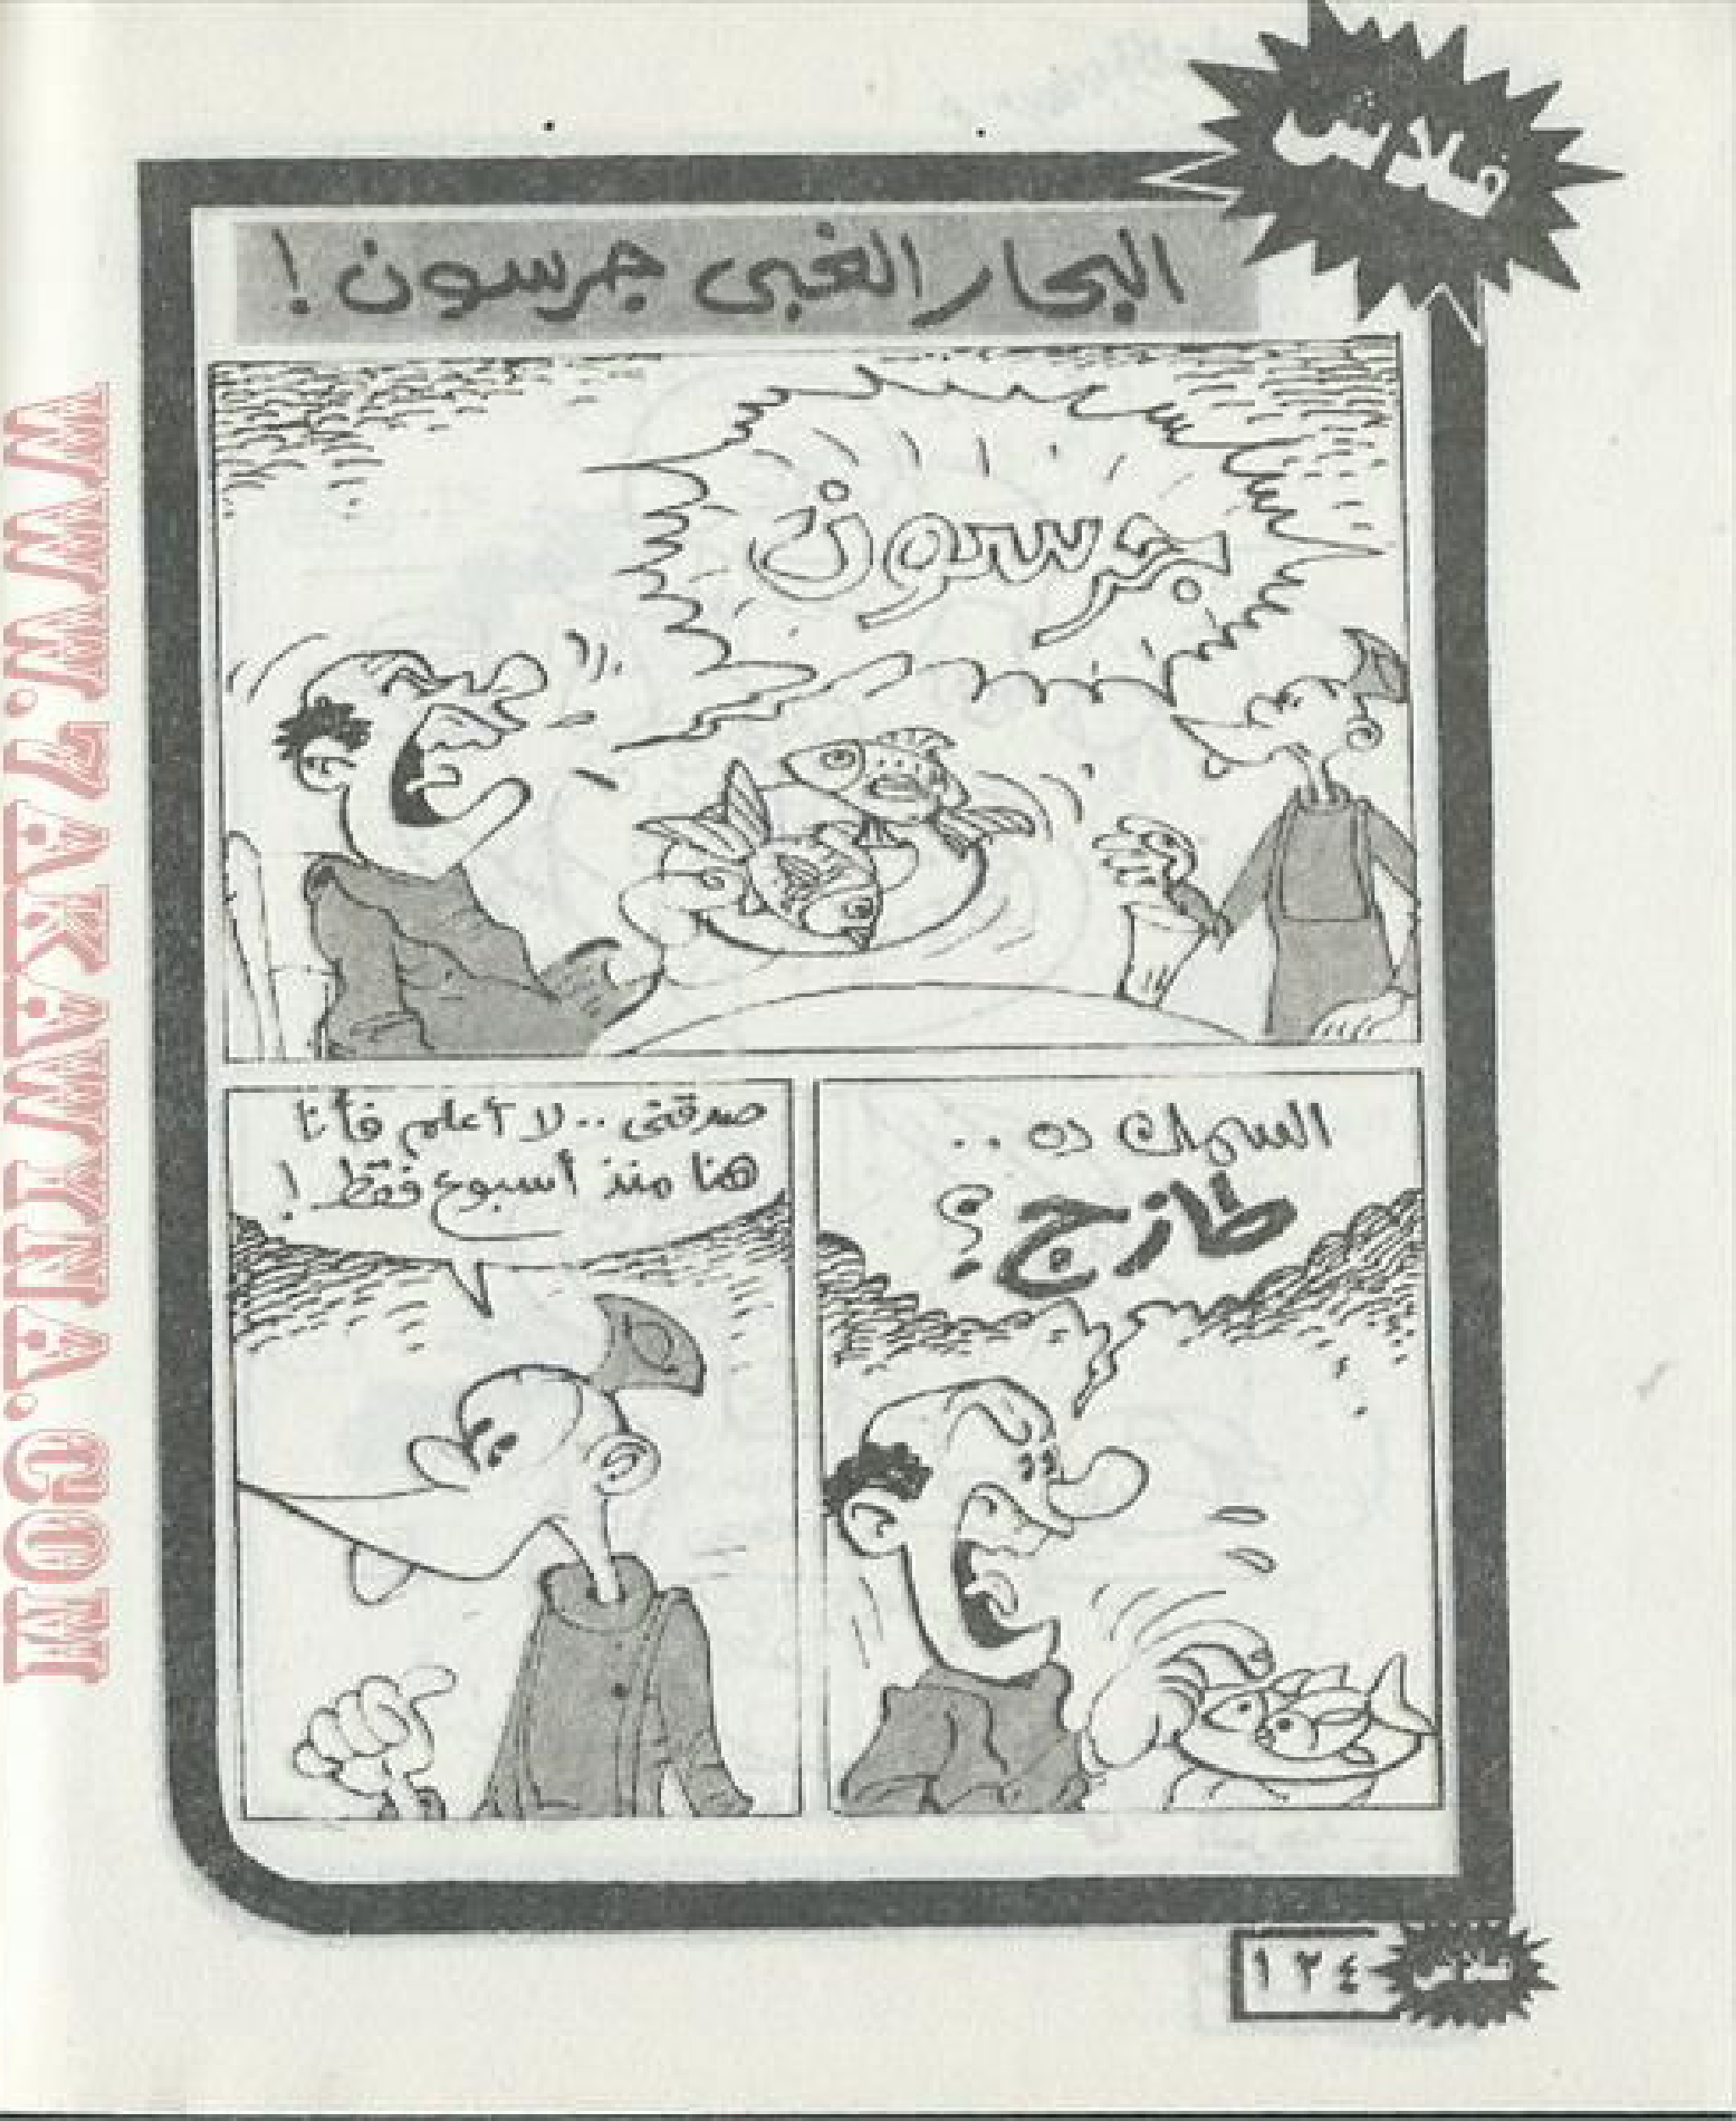 فلاش
البحار الغبى جرسون !
جرسون
السمك ده ..
طازج ؟
صدقنى .. لا أعلم فأنا
هنا منذ أسبوع فقط !
١٢٤
فلاش
WWW.7AKAWTINA.COM